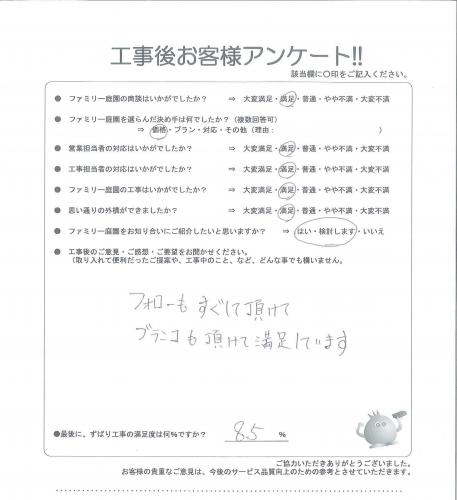 工事後お客様アンケート!!
該当欄に〇印をご記入ください。
● ファミリー庭園の商談はいかがでしたか? ⇒ 大変満足・満足・普通・やや不満・大変不満
● ファミリー庭園を選らんだ決め手は何でしたか?(複数回答可)
⇒ 価格・プラン・対応・その他(理由: )
● 営業担当者の対応はいかがでしたか? ⇒ 大変満足・満足・普通・やや不満・大変不満
● 工事担当者の対応はいかがでしたか? ⇒ 大変満足・満足・普通・やや不満・大変不満
● ファミリー庭園の工事はいかがでしたか? ⇒ 大変満足・満足・普通・やや不満・大変不満
● 思い通りの外構ができましたか? ⇒ 大変満足・満足・普通・やや不満・大変不満
● ファミリー庭園をお知り合いにご紹介したいと思いますか? ⇒ はい・検討します・いいえ
● 工事後のご意見・ご感想・ご要望をお聞かせください。
(取り入れて便利だったご提案や、工事中のこと、など、どんな事でも構いません。
フォローもすぐして頂けて
ブランコも頂けて満足しています
●最後に、ずばり工事の満足度は何%ですか? 85 %
ご協力いただきありがとうございました。
お客様の貴重なご意見は、今後のサービス品質向上のための参考とさせていただきます。